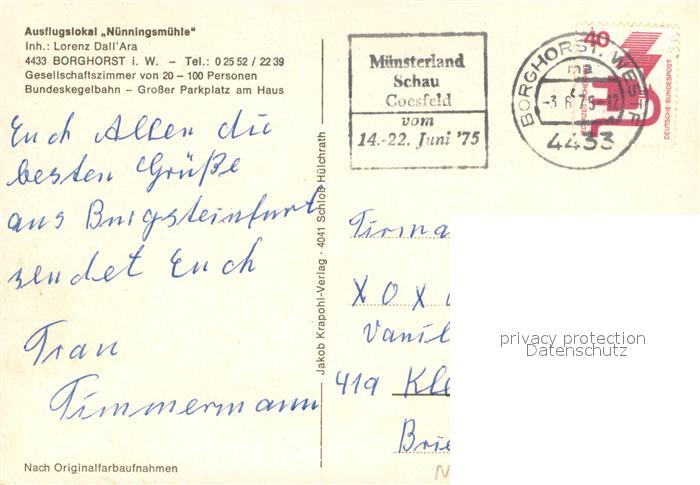 Ausflugslokal „Nünningsmühle"
Inh.: Lorenz Dall'Ara
4433 BORGHORST i. W. – Tel.: 0 25 52 / 22 39
Gesellschaftszimmer von 20 – 100 Personen
Bundeskegelbahn – Großer Parkplatz am Haus
Euch Allen die
besten Grüße
aus Burgsteinfurt
sendet Euch
Frau
Timmermann
Nach Originalfarbaufnahmen
Jakob Krapohl-Verlag · 4041 Schloß Hülchrath
Münsterland
Schau
Coesfeld
vom
14.-22. Juni '75
BORGHORST, WESTF
ma
-3.6.75-12
4433
40
DEUTSCHE BUNDESPOST
Firma
XOX
Vanil
419 Kle
Brie
privacy protection
Datenschutz